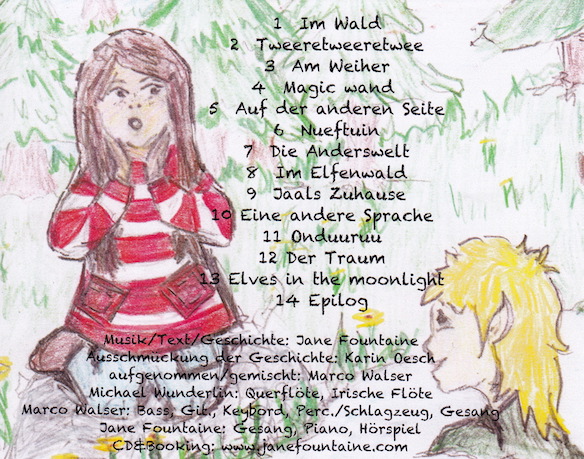 1 Im Wald
2 Tweeretweeretwee
3 Am Weiher
4 Magic wand
5 Auf der anderen Seite
6 Nueftuin
7 Die Anderswelt
8 Im Elfenwald
9 Jaals Zuhause
10 Eine andere Sprache
11 Onduuruu
12 Der Traum
13 Elves in the moonlight
14 Epilog
Musik/Text/Geschichte: Jane Fountaine
Ausschmückung der Geschichte: Karin Oesch
aufgenommen/gemischt: Marco Walser
Michael Wunderlin: Querflöte, Irische Flöte
Marco Walser: Bass, Git., Keybord, Perc./Schlagzeug, Gesang
Jane Fountaine: Gesang, Piano, Hörspiel
CD&Booking: www.janefountaine.com